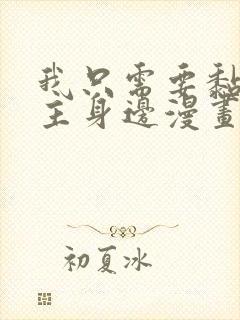 我只需要黏
主身邊漫畫
初夏冰